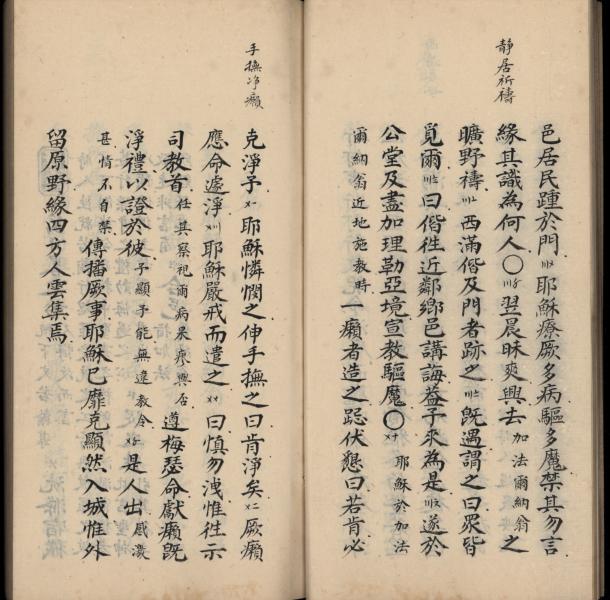 靜居祈禱
邑居民踵於門耶穌療厥多病驅多魔禁其勿言
緣其識為何人〇翌晨昧爽興去加法爾納翁之
曠野禱西滿偕及門者跡之旣遇謂之曰眾皆
覓爾曰偕徃近鄰鄉邑講誨葢予來為是遂於
公堂及盡加理勒亞境宣教驅魔〇耶穌於加法
爾納翁近地施教時一癩者造之跽伏懇曰若肯必
手撫凈癩
克淨予耶穌憐憫之伸手撫之曰肯淨矣厥癩
應命遽淨耶穌嚴戒而遣之曰慎勿洩惟徃示
司教首任其察視爾病果療與否遵梅瑟命獻癩旣
淨禮以證於彼予顯予能無違教令是人出感激
甚情不自禁傳播厥事耶穌已靡克顯然入城惟外
留原野緣四方人雲集焉